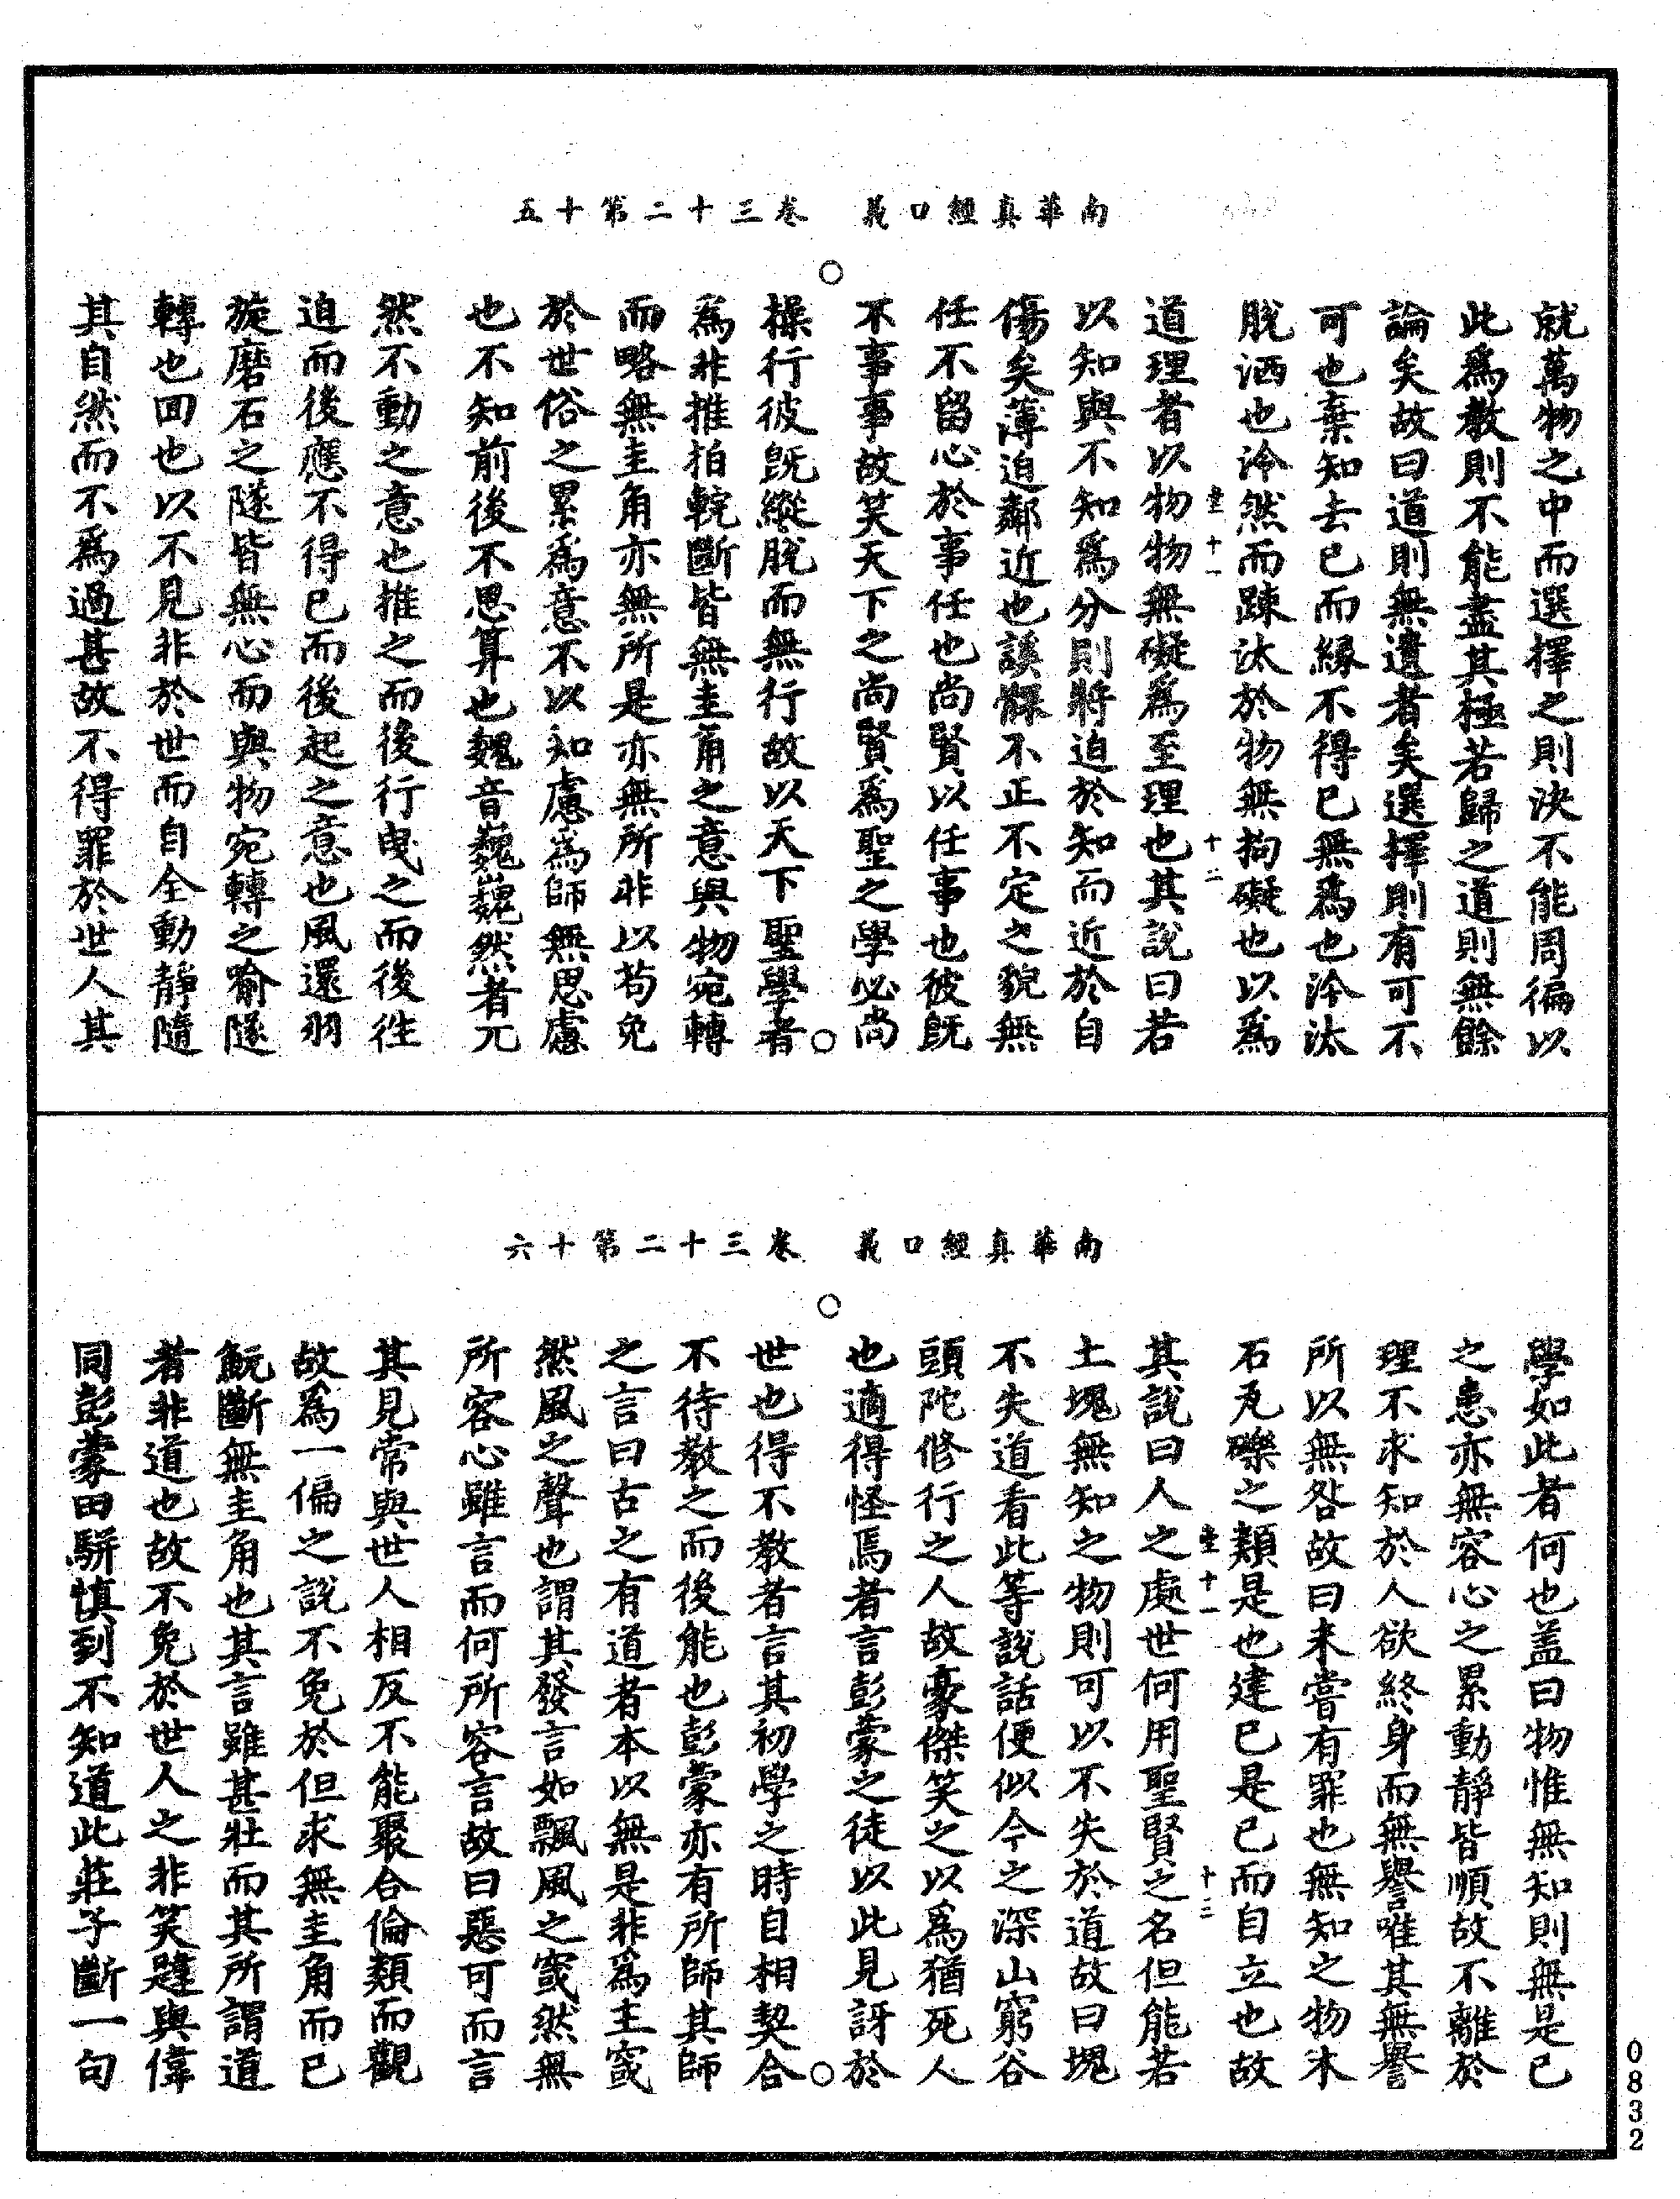 南華真經口義　卷三十二第十五
就萬物之中而選擇之則決不能周徧以
此爲教則不能盡其極若歸之道則無餘
論矣故曰道則無遺者矣選擇則有可不
可也棄知去已而緣不得已無爲也泠汰
脫洒也泠然而踈汰於物無拘礙也以爲
道理者以物物無礙爲至理也其說曰若
以知與不知爲分則將迫於知而近於自
傷矣薄迫鄰近也謑髁不正不定之貌無
任不留心於事任也尚賢以任事也彼既
不事事故笑天下之尚賢爲聖之學必尚
操行彼既縱脫而無行故以天下聖學者
爲非推拍輐斷皆無圭角之意與物宛轉
而略無圭角亦無所是亦無所非以苟免
於世俗之累爲意不以知慮爲師無思慮
也不知前後不思算也魏音巍巍然者兀
然不動之意也推之而後行曳之而後往
迫而後應不得已而後起之意也風還羽
旋磨石之隧皆無心而與物宛轉之喻隧
轉也回也以不見非於世而自全動靜隨
其自然而不爲過甚故不得罪於世人其
南華真經口義　卷三十二第十六
學如此者何也盖曰物惟無知則無是已
之患亦無容心之累動靜皆順故不離於
理不求知於人欲終身而無譽唯其無譽
所以無咎故曰未嘗有罪也無知之物木
石瓦礫之類是也建已是已而自立也故
其說曰人之處世何用聖賢之名但能若
土塊無知之物則可以不失於道故曰塊
不失道看此等說話便似今之深山窮谷
頭陀修行之人故豪傑笑之以爲猶死人
也適得怪焉者言彭蒙之徒以此見訝於
世也得不教者言其初學之時自相契合
不待教之而後能也彭蒙亦有所師其師
之言曰古之有道者本以無是非爲主窢
然風之聲也謂其發言如飄風之窢然無
所容心雖言而何所容言故曰惡可而言
其見常與世人相反不能聚合倫類而觀
故爲一偏之說不免於但求無圭角而已
魭斷無圭角也其言雖甚壯而其所謂道
者非道也故不免於世人之非笑韙與偉
同彭蒙田駢慎到不知道此莊子斷一句
0832